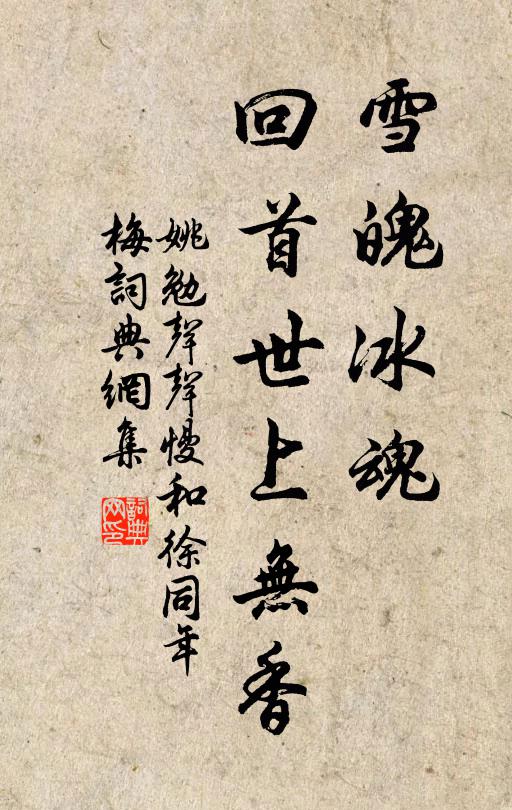 雪魄冰魂
回首世上無香
姚勉聲聲慢和徐同年
梅詞典網集
詞典
网印